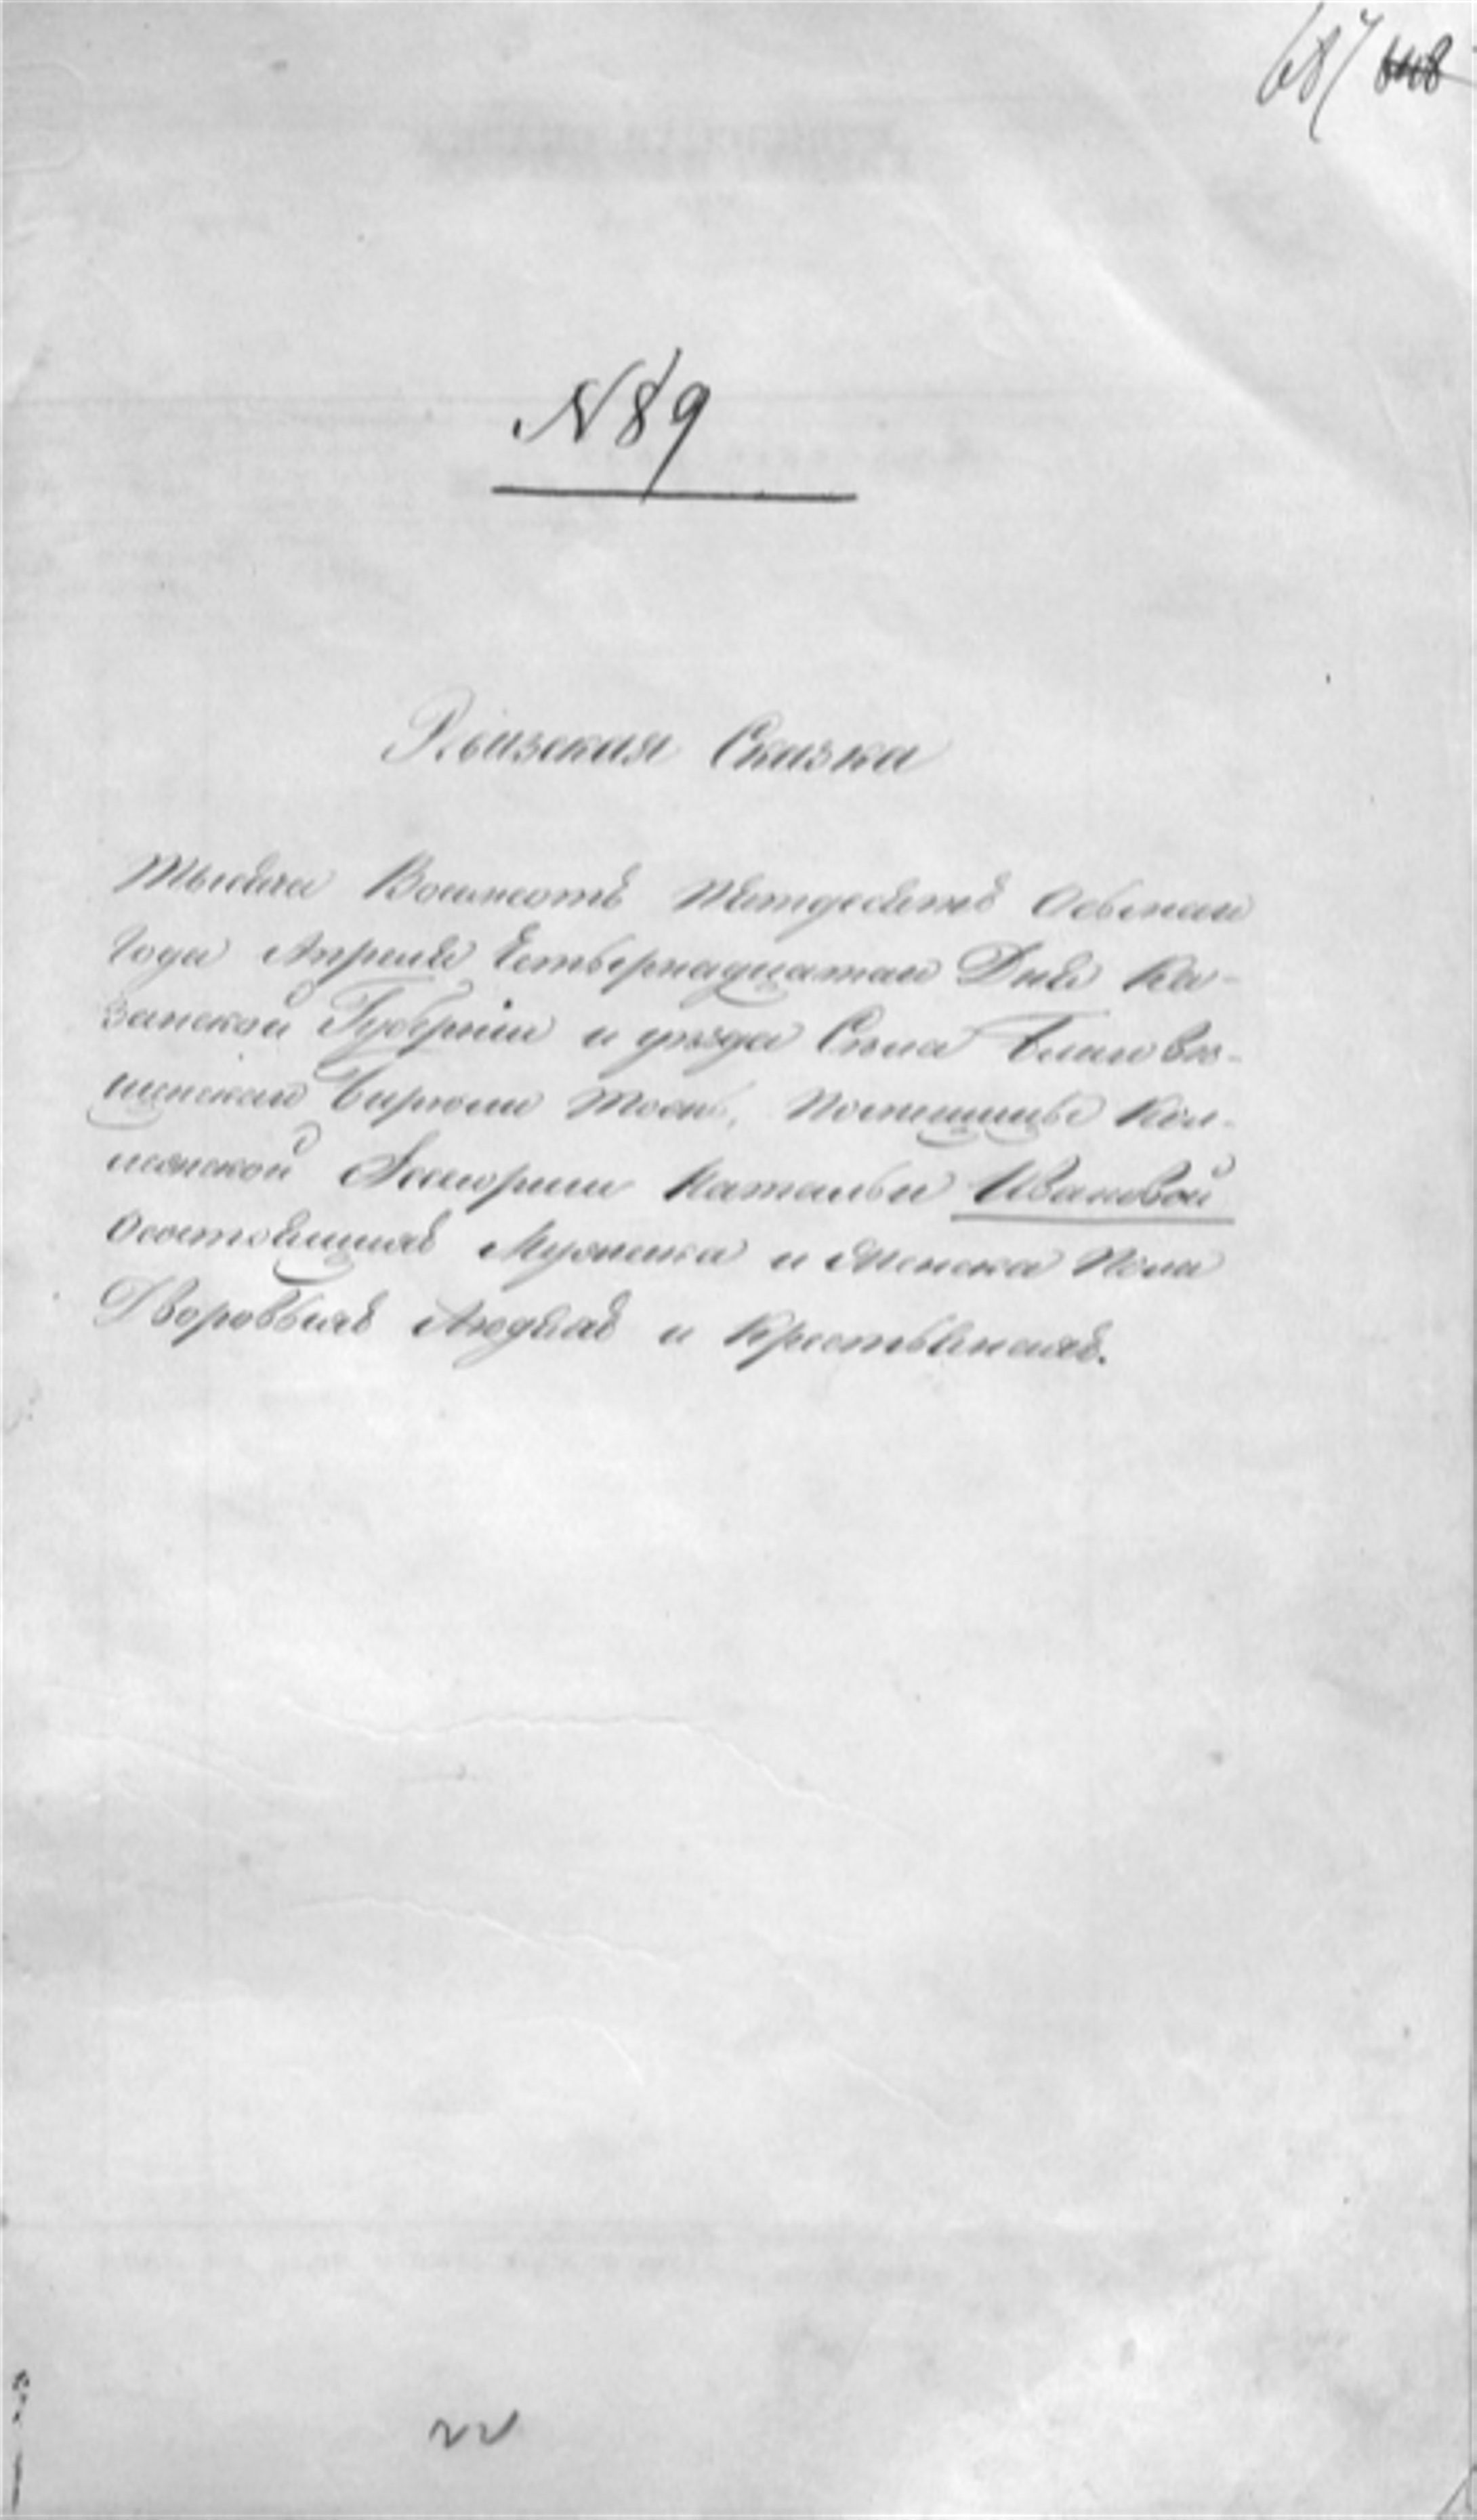 687 648
N 89
Ревизская Сказка
Тысяча Восемсотъ Пятдесятъ Осьмаго
Года Апреля Четырнадцатаго Дня Ка-
занской Губерніи и уезда Села Благове-
щенскаго Бирюли тожъ, Помещицы Кол-
лежской Асесорши Натальи Ивановой
Осостоящихъ Мужеска и Женска Пола
Дворовыхъ Людяхъ и Крестьянахъ.